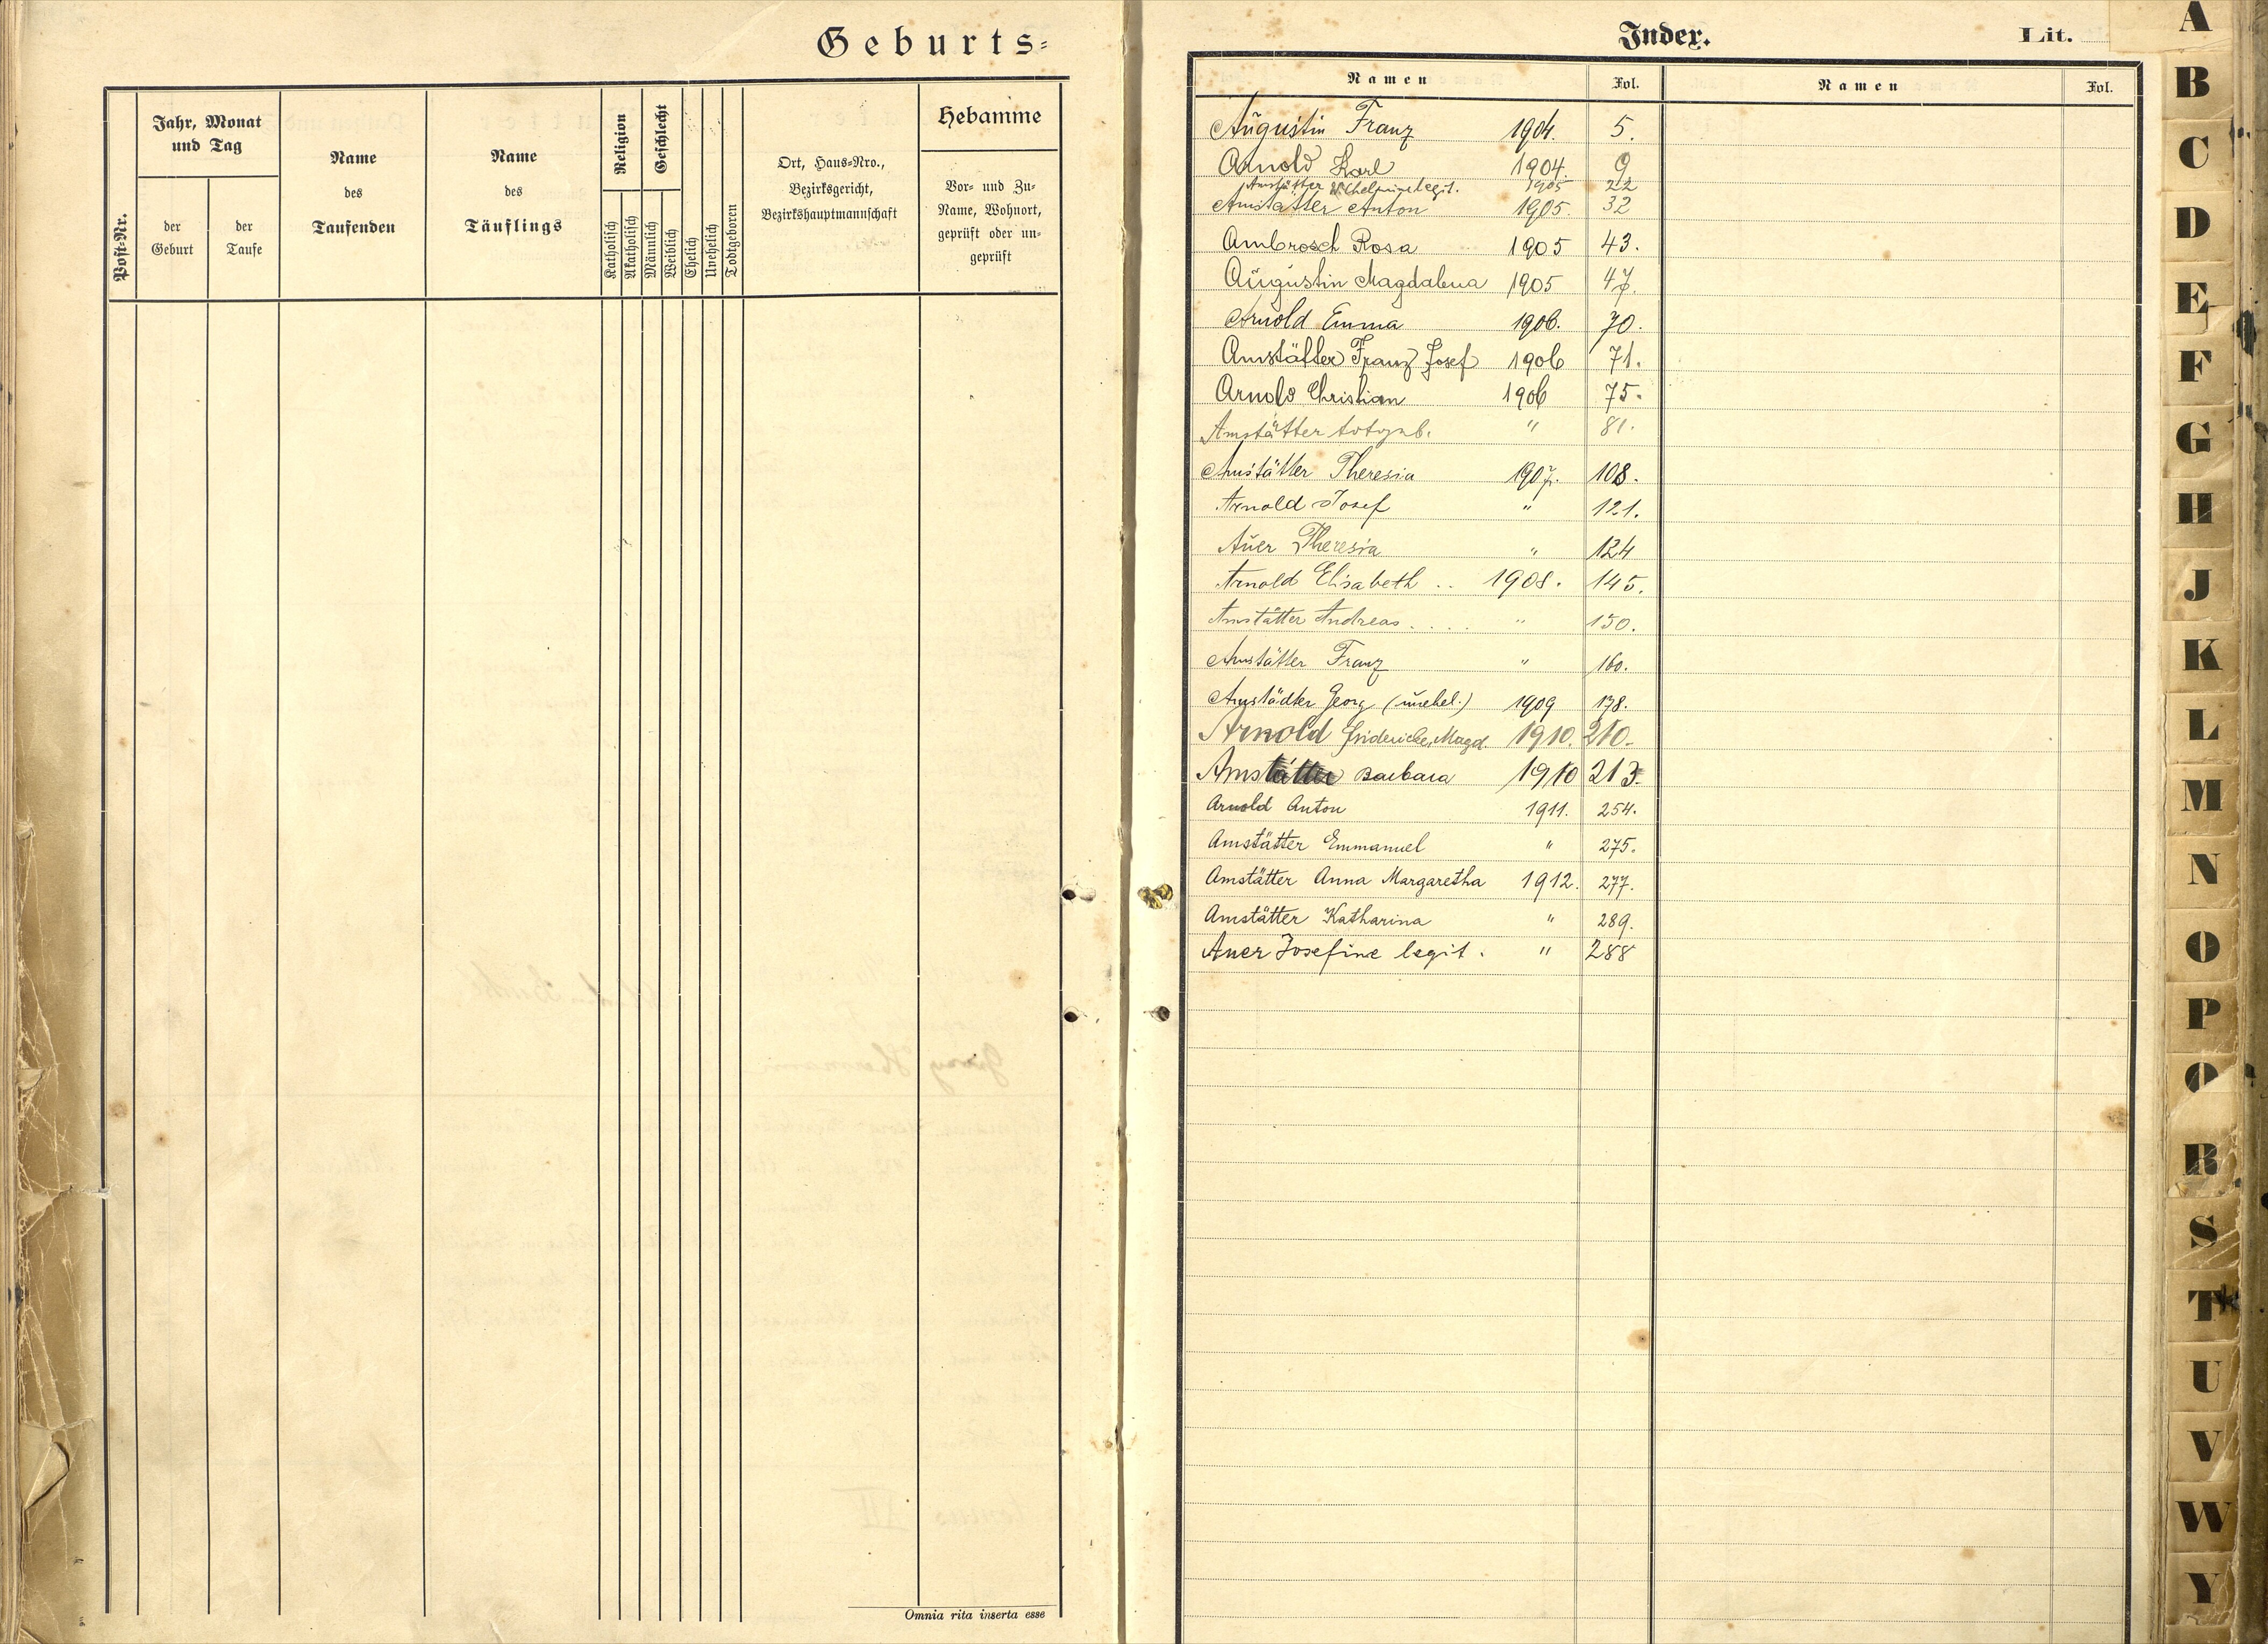 Geburts=
Post=Nr.
Jahr, Monat
und Tag
der
Geburt
der
Taufe
Name
des
Taufenden
Name
des
Täuflings
Religion
Katholisch
Akatholisch
Geschlecht
Männlich
Weiblich
Ehelich
Unehelich
Todtgeboren
Ort, Haus=Nro.,
Bezirksgericht,
Bezirkshauptmannschaft
Hebamme
Vor= und Zu=
Name, Wohnort,
geprüft oder un=
geprüft
Omnia rita inserta esse
Index.
Lit.
Namen Fol. Namen Fol.
Augustin Franz 1904. 5.
Arnold Karl 1904. 9
Amstätter Wilhelmine legit. 1905 22
Amstätter Anton 1905. 32
Ambrosch Rosa 1905 43.
Augustin Magdalena 1905 47.
Arnold Emma 1906. 70.
Amstätter Franz Josef 1906 71.
Arnold Christian 1906 75.
Amstätter totgeb. " 81.
Amstätter Theresia 1907. 108.
Arnold Josef " 121.
Auer Theresia " 124
Arnold Elisabeth .. 1908. 145.
Amstätter Andreas .... " 150.
Amstätter Franz " 160.
Amstädter Georg (unehel.) 1909 198.
Arnold Fridericke, Magd. 1910. 210.
Amstätter Barbara 1910 213.
Arnold Anton 1911. 254.
Amstätter Emmanuel " 275.
Amstätter Anna Margaretha 1912. 277.
Amstätter Katharina " 289.
Auer Josefine legit. " 288
A
B
C
D
E
F
G
H
J
K
L
M
N
O
P
Q
R
S
T
U
V
W
Y